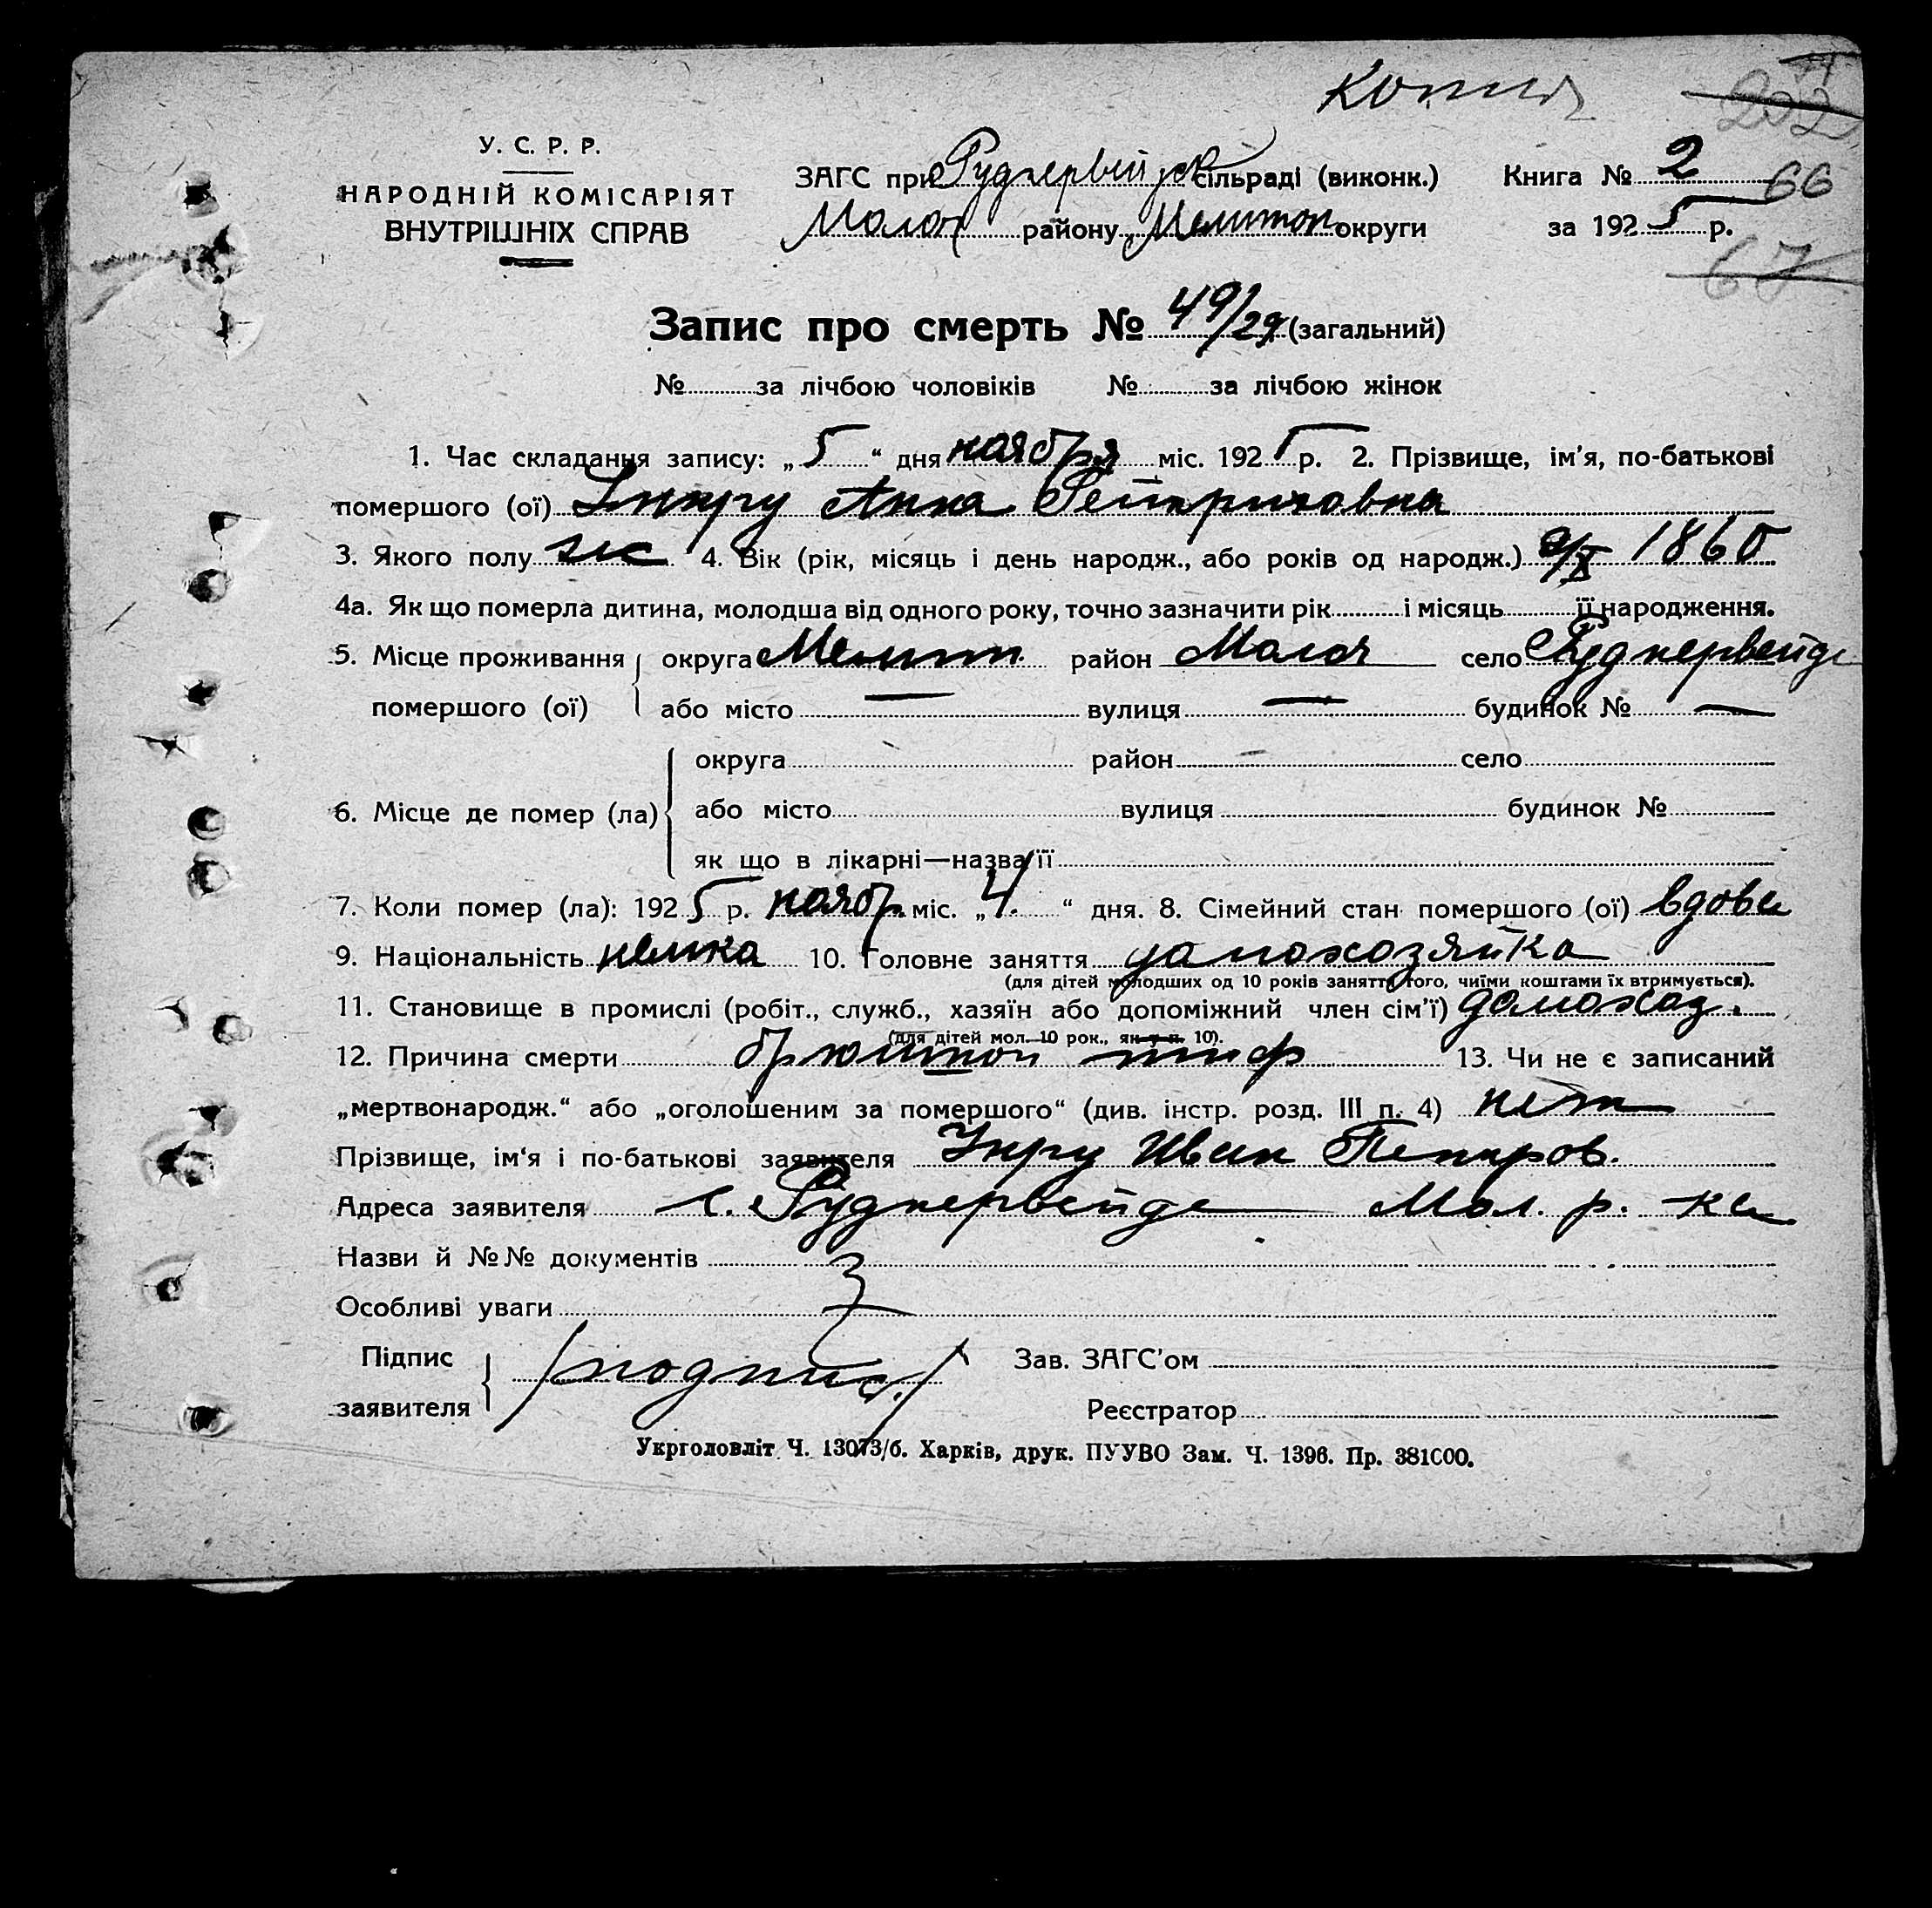 Копия
202
У. С. Р. Р.
НАРОДНІЙ КОМІСАРІЯТ
ВНУТРІШНІХ СПРАВ
ЗАГС при Руднервейдск сільраді (виконк.) Книга № 2 66
Молоч району Мелитоп округи за 1925 р.
67
Запис про смерть № 49/29 (загальний)
№ за лічбою чоловіків № за лічбою жінок
1. Час складання запису: „5“ дня ноября міс. 1925 р. 2. Прізвище, ім’я, по-батькові
помершого (ої) Унру Анна Гейнриховна
3. Якого полу жс 4. Вік (рік, місяць і день народж., або років од народж.) 9/X 1860
4а. Як що померла дитина, молодша від одного року, точно зазначити рік і місяць її народження.
5. Місце проживання округа Мелит. район Молоч село Руднервейде
помершого (ої) або місто — вулиця — будинок № —
округа район — село
6. Місце де помер (ла) або місто вулиця будинок №
як що в лікарні—назва її
7. Коли помер (ла): 1925 р. ноябр. міс. „4.“ дня. 8. Сімейний стан помершого (ої) вдова
9. Національність немка 10. Головне заняття домохозяйка
(для дітей молодших од 10 років заняття того, чиїми коштами їх втримується).
11. Становище в промислі (робіт., служб., хазяїн або допоміжний член сім’ї) домохоз.
(для дітей мол. 10 рок., як у п. 10).
12. Причина смерти брюшной тиф 13. Чи не є записаний
„мертвонародж.“ або „оголошеним за помершого“ (див. інстр. розд. III п. 4) нет
Прізвище, ім‘я і по-батькові заявителя Унру Иван Петров.
Адреса заявителя с. Руднервейде Мол. р. ка
Назви й №№ документів
Особливі уваги
Підпис /подпись/ Зав. ЗАГС’ом
заявителя Реєстратор
Укрголовліт Ч. 13073/б. Харків, друк. ПУУВО Зам. Ч. 1396. Пр. 381000.